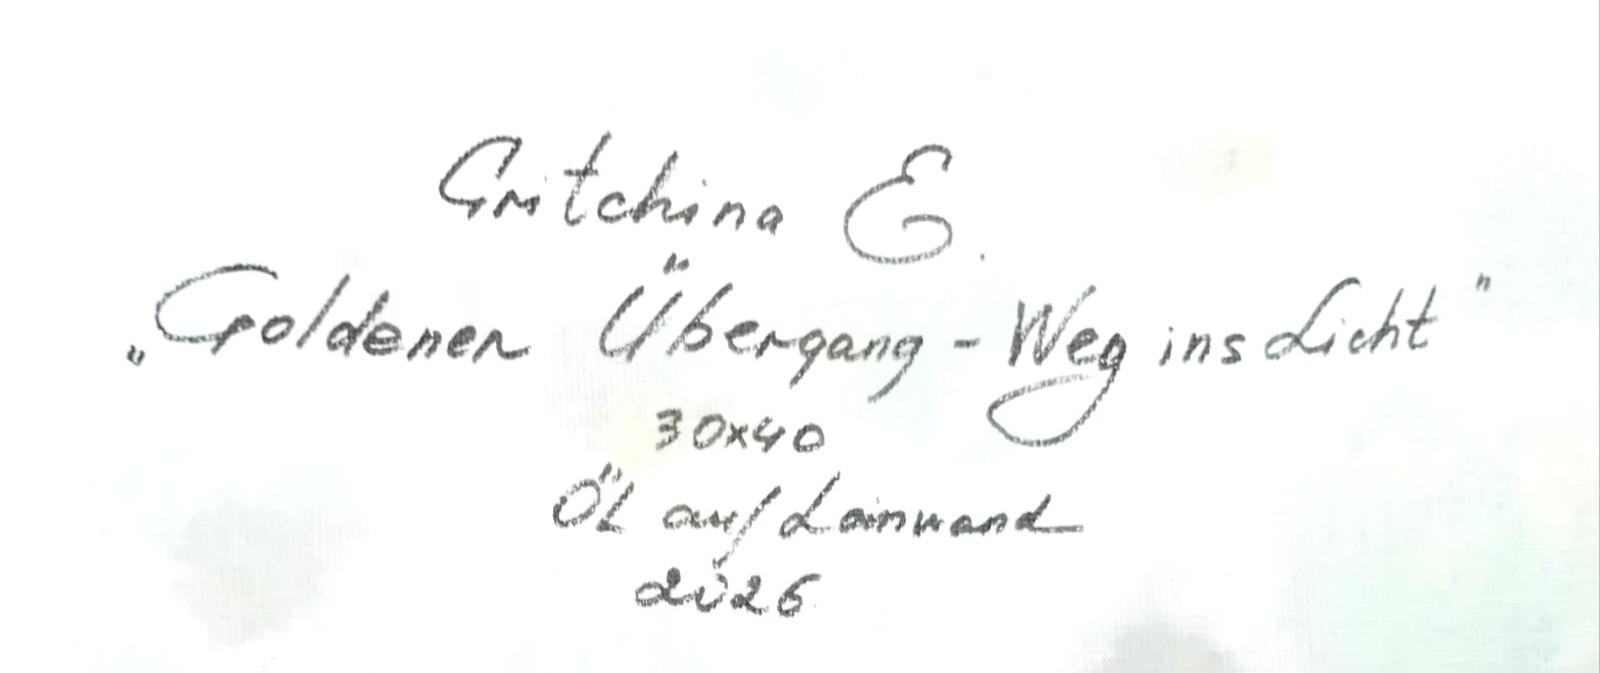 Gritchina E.
„Goldener Übergang - Weg ins Licht"
30x40
Öl auf Leinwand
2026